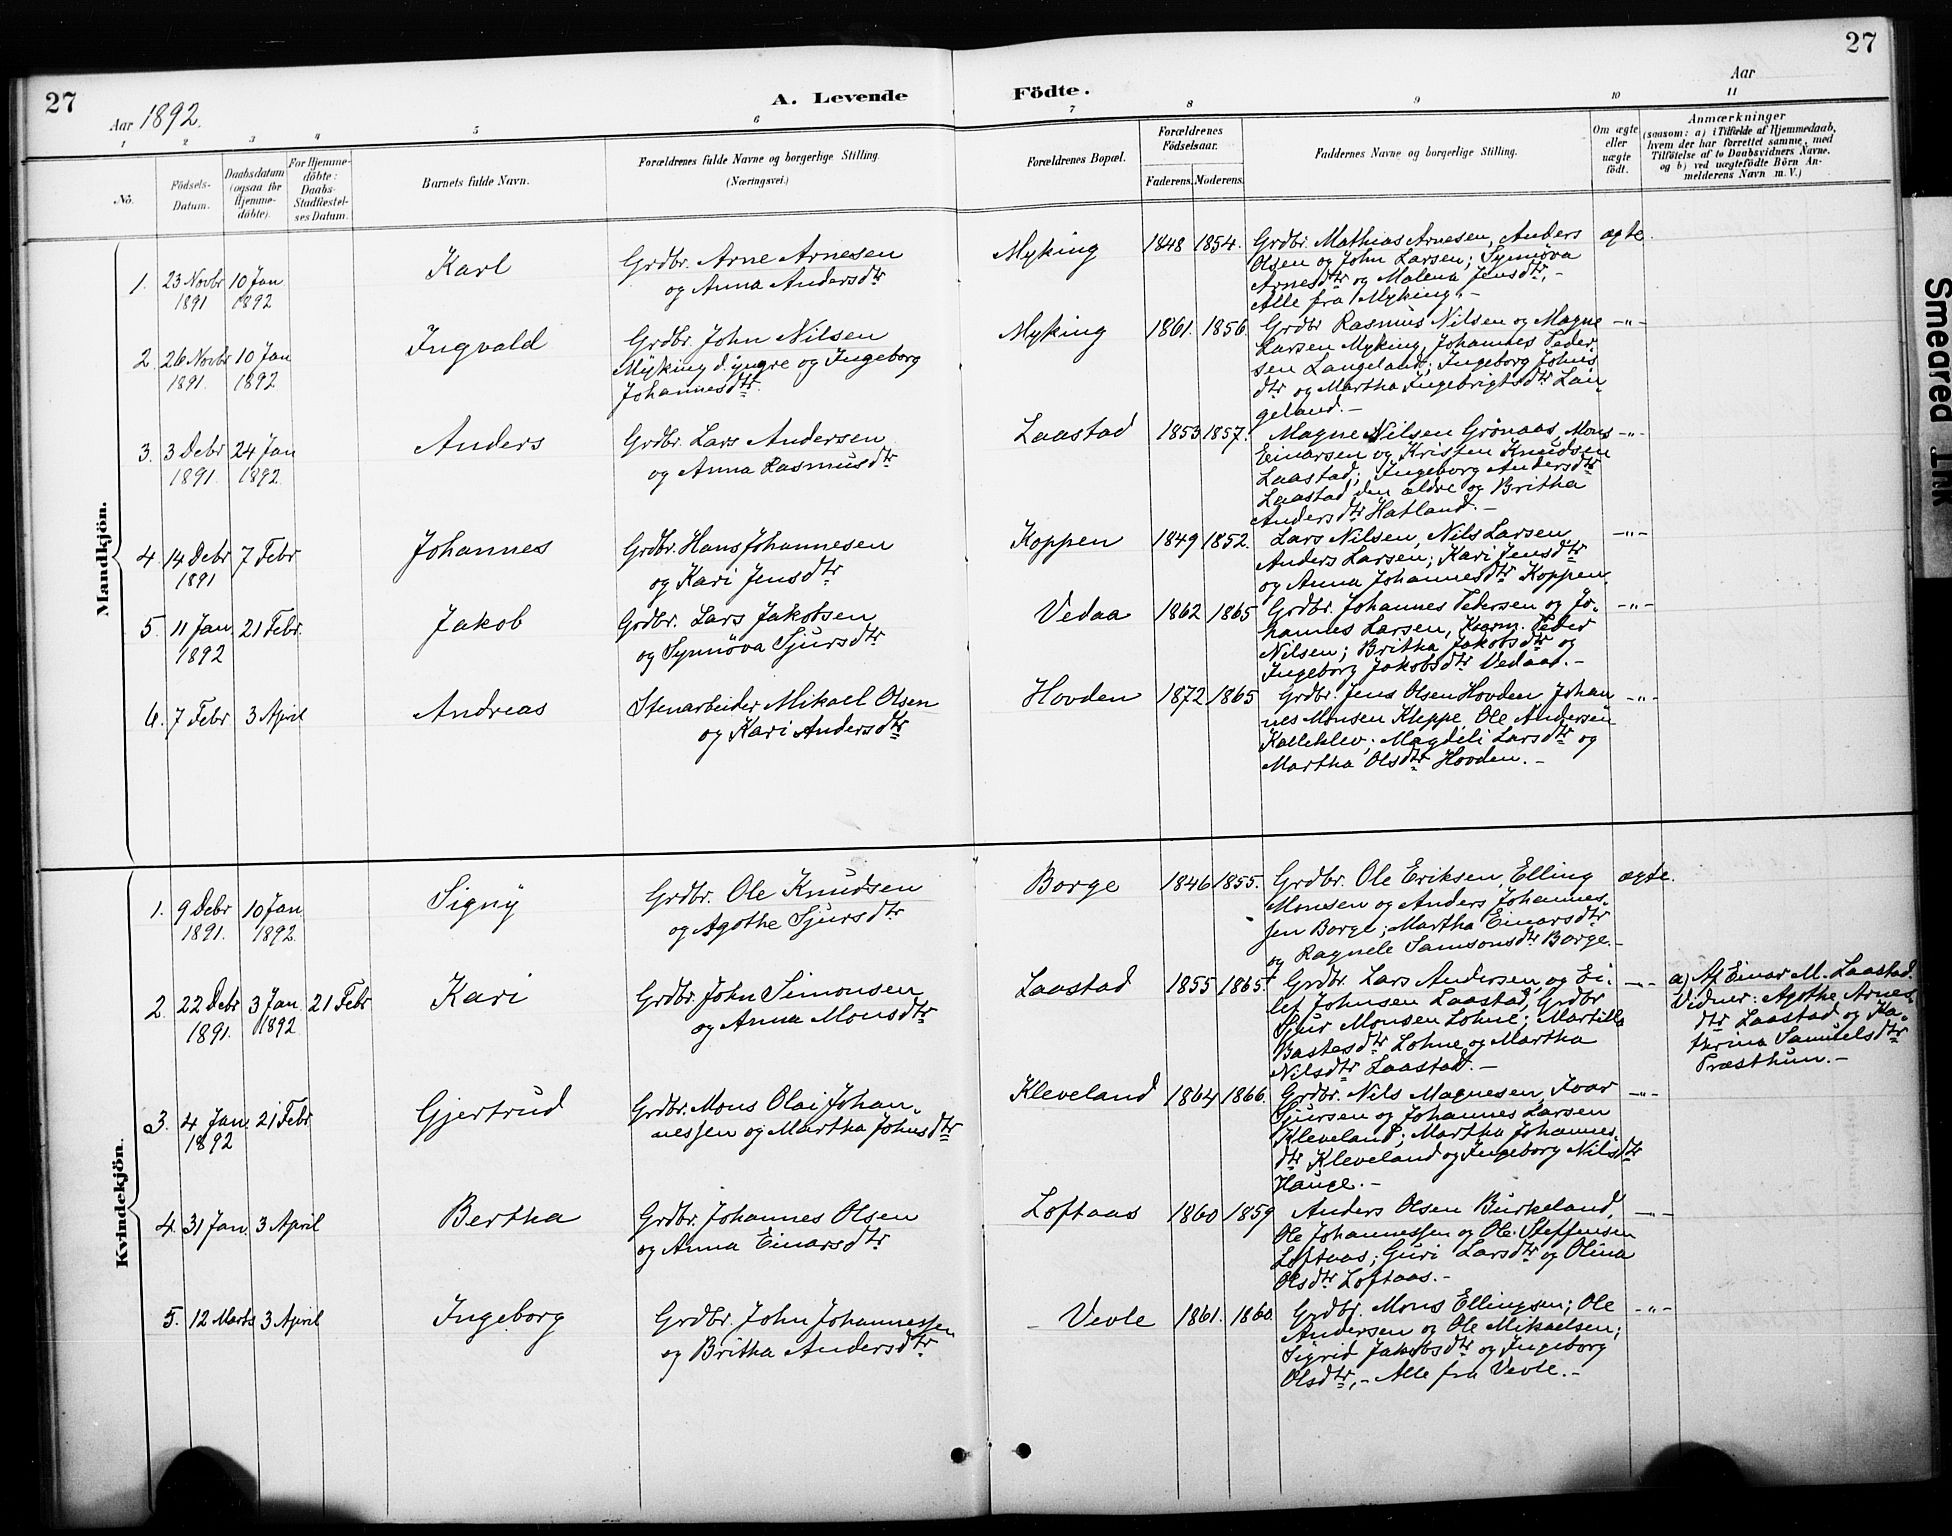 27
Aar 1892.
A. Levende
Födte.
Aar
27
1
2
3
4
5
6
7
8
9
10
11
No.
Födsels-
Datum.
Daabsdatum
(ogsaa for
Hjemme-
döbte).
For Hjemme-
döbte:
Daabs-
Stadfæstel-
ses Datum.
Barnets fulde Navn.
Forældrenes fulde Navne og borgerlige Stilling.
(Næringsvei.)
Forældrenes Bopæl.
Forældrenes
Födselsaar.
Faderens. Moderens.
Faddernes Navne og borgerlige Stilling.
Om ægte
eller
uægte
födt.
Anmærkninger
(saasom: a) i Tilfælde af Hjemmedaab,
hvem der har forrettet samme, med
Tilföielse af to Daabsvidners Navne.
og b) ved uægtefödte Börn An-
melderens Navn m. V.)
Mandkjön.
1. 23 Novbr 1891
10 Jan 1892
Karl
Grdbr. Arne Arnesen
og Anna Andersdtr
Myking
1848 1854.
Grdbr. Mathias Arnesen, Anders
Olsen og John Larsen; Synnöva
Arnesdtr og Malena Jensdtr,-
Alle fra Myking.-
ægte.
2. 26 Novbr 1891.
10 Jan 1892
Ingvald
Grdbr. John Nilsen
Myking d. yngre og Ingeborg
Johannesdtr.
Myking
1861. 1856
Grdbr Rasmus Nilsen og Magne
Larsen Myking, Johannes Peder
sen Langeland; Ingeborg Johns
dtr og Martha Ingebrigtsdtr Lan-
geland.-
-"-
3. 3 Debr 1891.
24 Jan 1892.
Anders
Grdbr. Lars Andersen
og Anna Rasmusdtr
Laastad
1853 1857.
Magne Nilsen Grönaas, Mons
Einarsen og Kristen Knudsen
Laastad; Ingeborg Andersdtr
Laastad den ældre og Britha
Andersdtr Hatland.-
-"-
4. 14 Debr 1891
7 Febr
Johannes
Grdbr. Hans Johannesen
og Kari Jensdtr
Koppen
1849 1852.
Lars Nilsen, Nils Larsen,
Anders Larsen; Kari Jensdtr
og Anna Johannesdtr Koppen
-"-
5. 11 Jan 1892
21 Febr.
Jakob
Grdbr. Lars Jakobsen
og Synnöva Sjursdtr
Vedaa
1862 1865
Grdbr. Johannes Pedersen og Jo-
hannes Larsen, Peder
Nilsen; Britha Jakobsdtr og
Ingeborg Jakobsdtr Vedaa.-
-"-
6. 7 Febr
3 April
Andreas
Stenarbeider Mikael Olsen
og Kari Andersdtr
Hovden
1872 1865
Grdbr. Jens Olsen Hovden, Johan
nes Monsen Kleppe, Ole Andersen
Kalleklev; Magdeli Larsdtr og
Martha Olsdtr Hovden.-
-"-
Kvindekjön.
1. 9 Debr 1891.
10 Jan 1892.
Signy
Grdbr. Ole Knudsen
og Agothe Sjursdtr
Borge
1846 1855.
Grdbr. Ole Eriksen, Elling
Monsen og Anders Johannes-
sen Borge; Martha Einarsdtr
og Ragnele Samsonsdtr Borge.-
ægte.
2. 22 Debr 1891.
3 Jan. 1892.
21 Febr
Kari
Grdbr. John Simonsen
og Anna Monsdtr
Laastad
1855 1865
Grdbr. Lars Andersen og Ei-
lef Johnsen Laastad, Grdbr
Sjur Monsen Lohne; Martille
Bastesdtr Lohne og Martha
Nilsdtr Laastad.-
-"-
a) Af Einar M. Laastad.
Vidner: Agothe Arnes-
dtr Laastad og Ka-
thrina Samuelsdtr
Præsthun.-
3. 4 Jan. 1892
21 Febr
Gjertrud
Grdbr. Mons Olai Johan-
nessen og Martha Johnsdtr
Kleveland
1864 1866.
Grdbr. Nils Magnesen, Ivar
Sjursen og Johannes Larsen
Kleveland; Martha Johannes-
dtr Kleveland og Ingeborg Nilsdtr
Hauge.-
-"-
4. 31 Jan.
3 April
Bertha
Grdbr. Johannes Olsen
og Anna Einarsdtr
Loftaas
1860 1859
Anders Olsen Burkeland,
Ole Johannessen og Ole Steffensen
Loftaas; Guri Larsdtr og Olina
Olsdtr Loftaas.-
-"-
5. 12 Marts
3 April
Ingeborg
Grdbr. John Johannessen
og Britha Andersdtr
Vevle
1861. 1860.
Grdbr. Mons Ellingsen; Ole
Andersen og Ole Mikaelsen;
Sigrid Jakobsdtr og Ingeborg
Olsdtr,- Alle fra Vevle.-
-"-
Smeared Ink